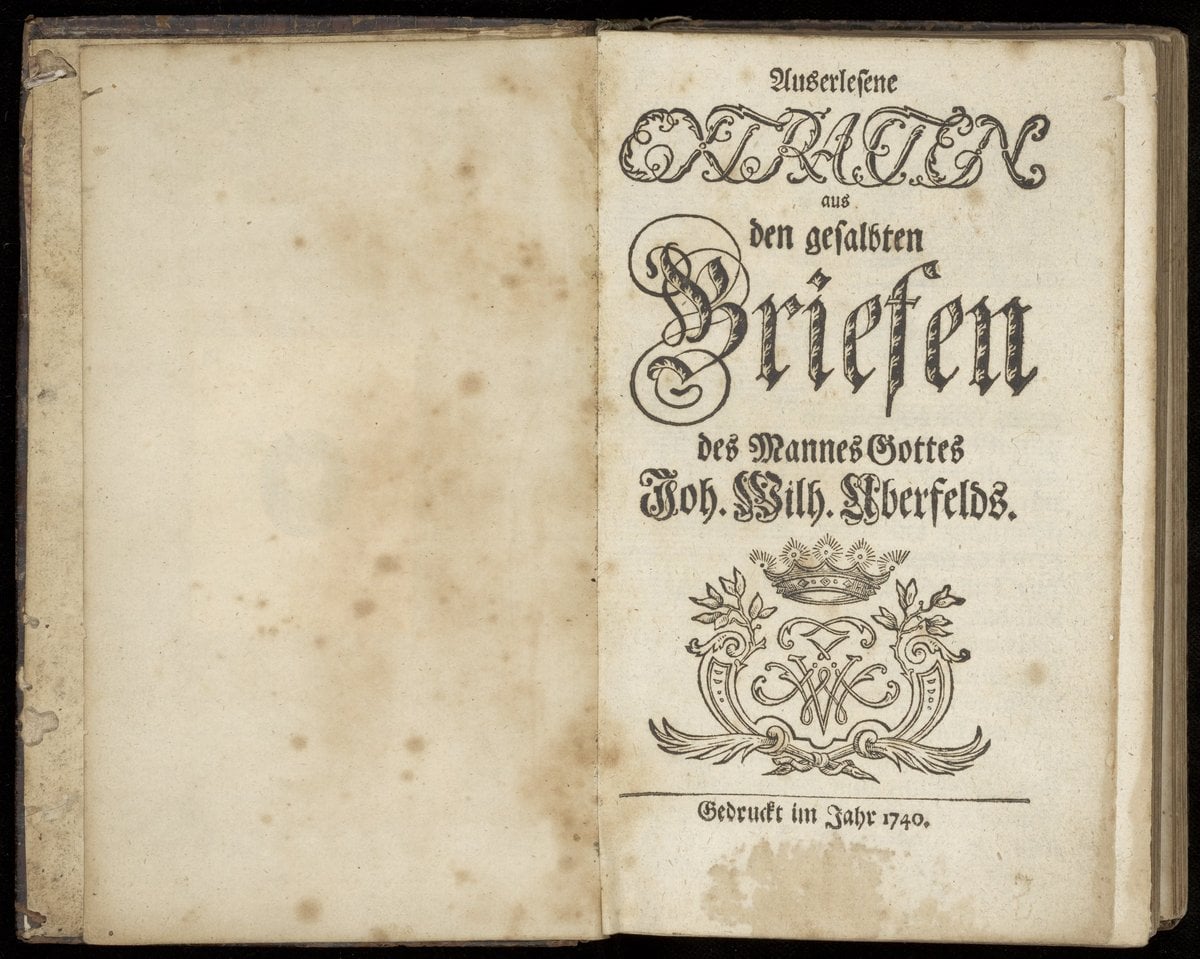 Auserlesene
EXTRACTEN
aus
den gesalbten
Briefen
des Mannes Gottes
Joh. Wilh. Uberfelds.
Gedruckt im Jahr 1740.